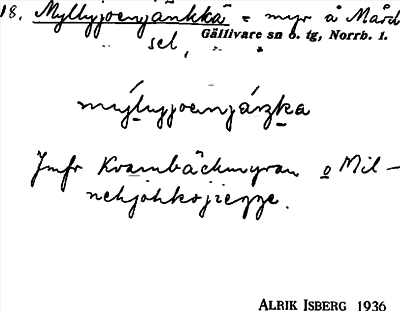 18. Myllyjoenjänkkä = myr å Mård
sel, Gällivare sn o. tg, Norrb. l.
mýllyjoenjáŋka
Jmfr Kvarnbäckmyran o Mil-
nekjohkojiegge.
ALRIK ISBERG 1936